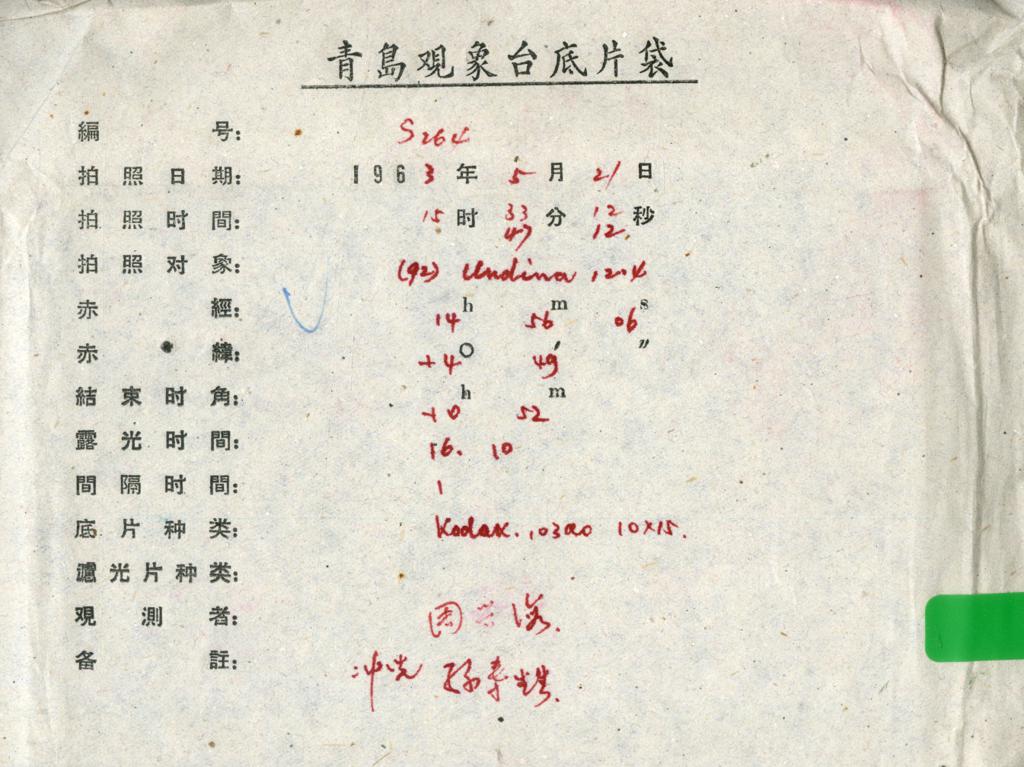 青島观象台底片袋
編号: S264
拍照日期: 1963年5月21日
拍照时間: 15时33分12秒
47 12
拍照对象: (92) Undina 12.4
赤經: 14h 56m 06s
赤緯: +4° 49′ ″
結束时角: +0h 52m
露光时間: 16. 10
間隔时間: 1
底片种类: Kodak. 103a0 10×15.
濾光片种类:
观測者:
备註: 冲洗 孫寿